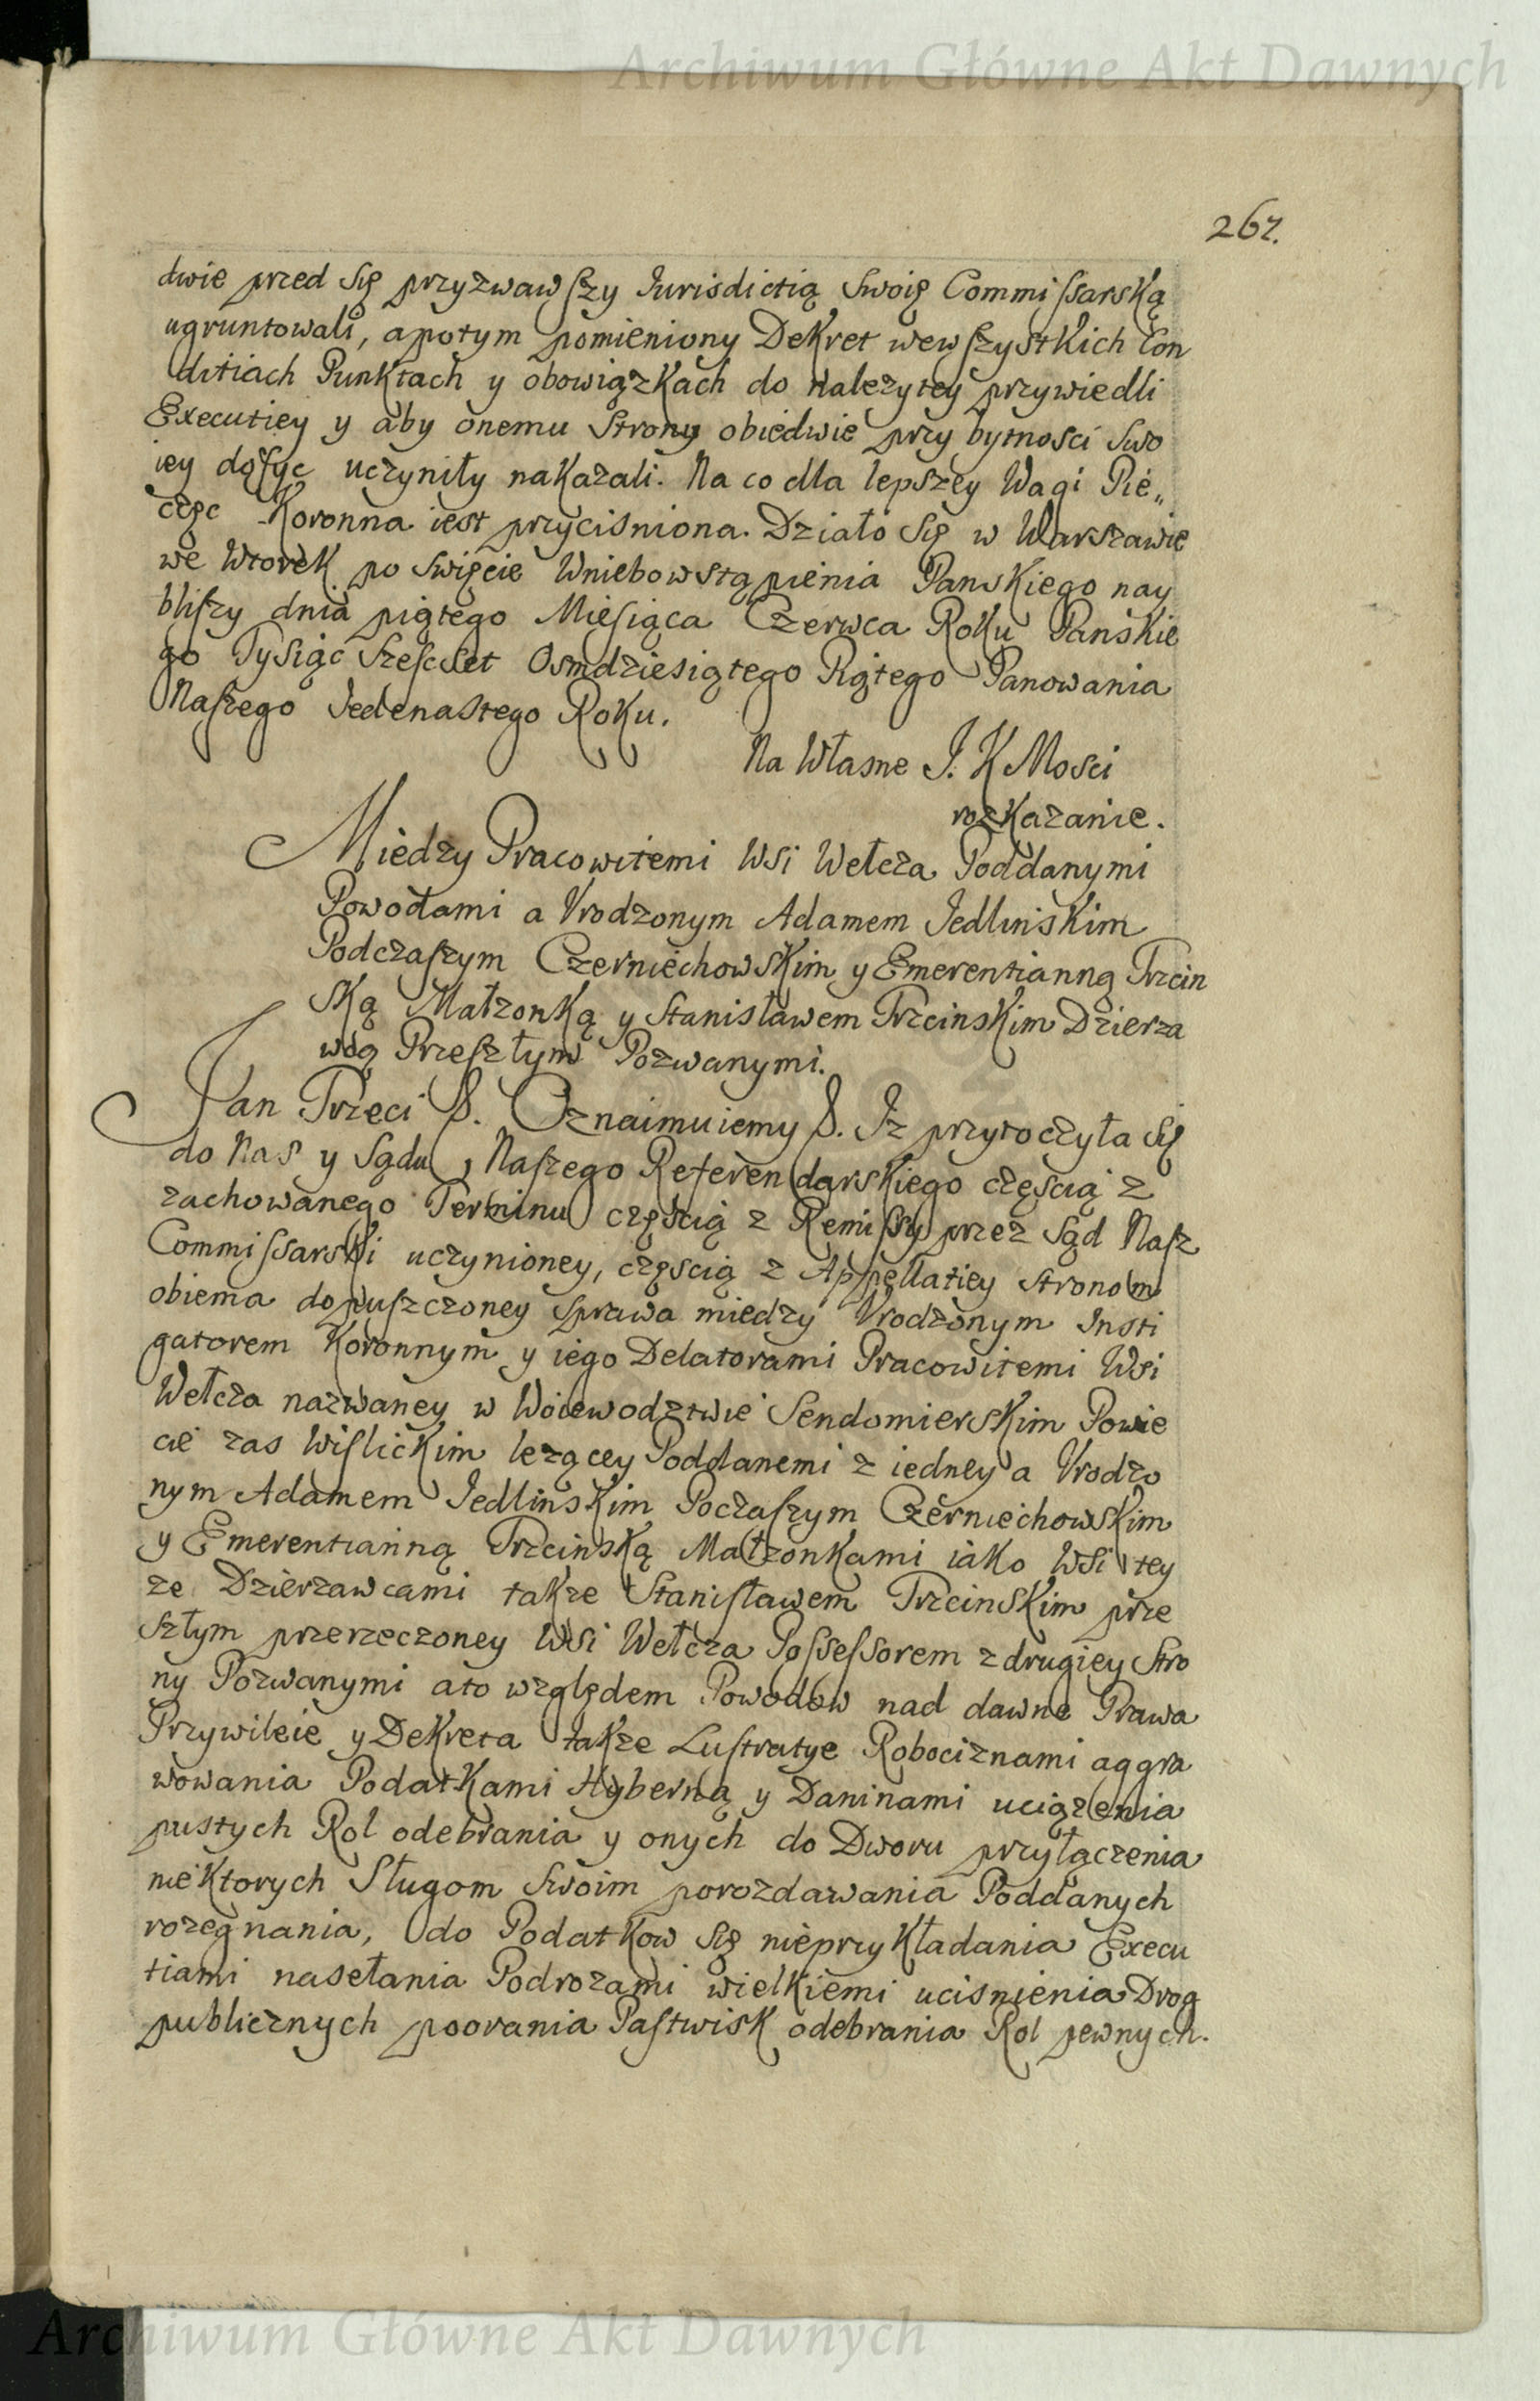 Archiwum Główne Akt Dawnych
267.
dwie przed się przyzwawszy Iurisdictią swoię Commissarską
ugruntowali, apotym pomieniony Dekret wewszystkich Con
ditiach Punktach y obowiązkach do należytey przywiedli
Executiey y aby onemu Strony obiedwie przy bytnosci swo
iey dosyc uczyniły nakazali. Na co dla lepszey Wagi Pie„
częc Koronna iest przycisniona. Działo się w Warszawie
we Wtorek po swięcie Wniebowstąpienia Panskiego nay
bliszy dnia piątego Miesiąca Czerwca Roku Panskie
go Tysiąc szescset Osmdziesiątego Piątego Panowania
Naszego Iedenastego Roku.
Na Własne J. K Mosci
rozkazanie.
Miedzy Pracowitemi Wsi Wełcza Poddanymi
Powodami a Vrodzonym Adamem Jedlinskim
Podczaszym Czerniechowskim y Emerentianną Trzcin
ską Małzonką y Stanisławem Trzcinskim Dzierza
wcą Przeszłym Pozwanymi.
Jan Trzeci S. Oznaimuiemy S. Iz przytoczyła się
do Nas y Sądu Naszego Referendarskiego częścią z
zachowanego Terminu częścią z Remissy przez Sąd Nasz
Commissarski uczynioney, częscią z Appellatiey stronom
obiema dopuszczoney sprawa miedzy Vrodzonym Insti
gatorem Koronnym y iego Delatorami Pracowitemi Wsi
Wełcza nazwaney w Woiewodztwie Sendomierskim Powie
cie zas Wislickim lezącey Poddanemi z iedney a Vrodzo
nym Adamem Jedlinskim Poczaszym Czerniechowskim
y Emerentianną Trzcinską Małzonkami iako Wsi tey
ze Dzierzawcami takze Stanisławem Trzcinskim prze
szłym przerzeczoney Wsi Wełcza Possessorem z drugiey Stro
ny Pozwanymi ato względem Powodow nad dawne Prawa
Przywileie y Dekreta takze Lustratye Robociznami aggra
wowania Podatkami Hyberną y Daninami uciązenia
pustych Rol odebrania y onych do Dworu przyłączenia
niektorych Sługom swoim porozdawania Poddanych
rozegnania, do Podatkow się nieprzykładania Execu
tiami nasełania Podrozami wielkiemi ucisnienia Drog
publicznych poorania Pastwisk odebrania Rol pewnych.
Archiwum Główne Akt Dawnych